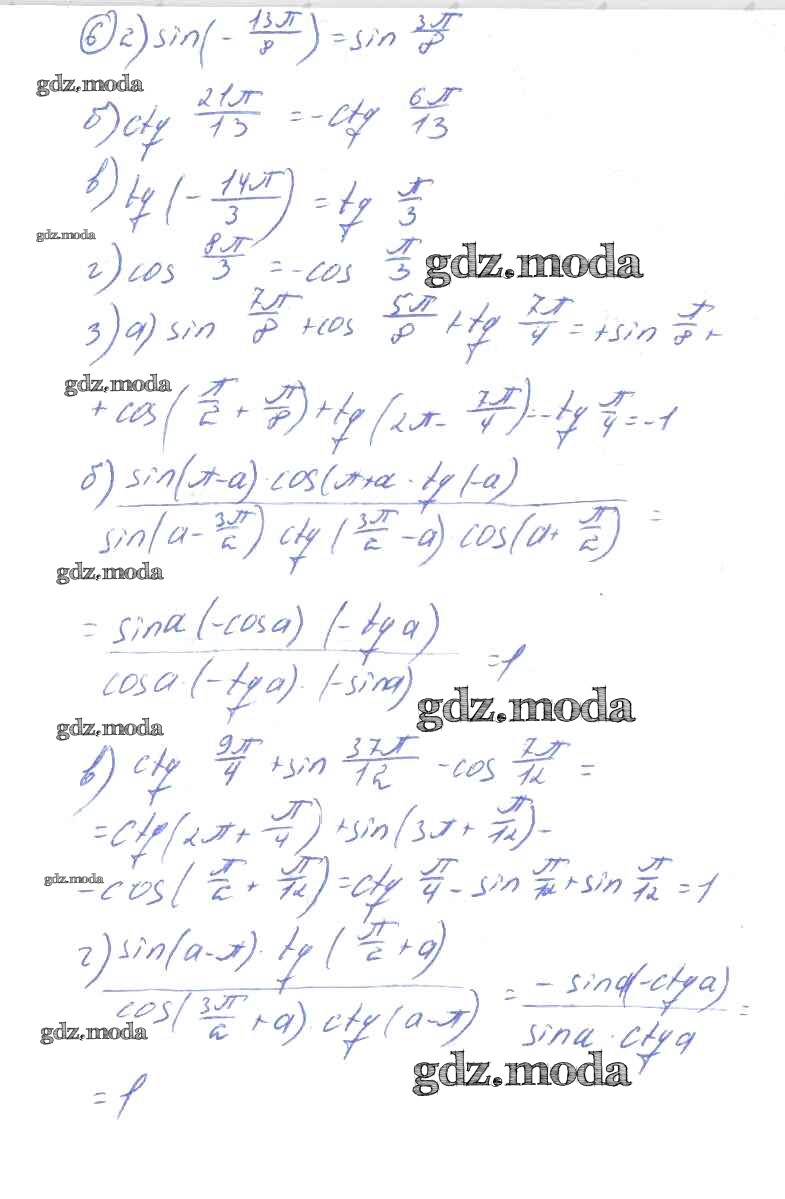 6 2) sin(- 13π/8) = sin 3π/8
gdz.moda
б) ctg 21π/13 = -ctg 6π/13
в) tg(- 14π/3) = tg π/3
gdz.moda
г) cos 8π/3 = -cos π/3
gdz.moda
3) а) sin 7π/8 + cos 5π/8 + tg 7π/4 = + sin π/8 +
gdz.moda
+ cos(π/2 + π/8) + tg(2π - 7π/4) = -tg π/4 = -1
б) sin(π-a)·cos(π+a·tg(-a) / sin(a- 3π/2) ctg(3π/2 -a) cos(a+ π/2) =
gdz.moda
= sina(-cosa)(-tga) / cosa·(-tga)·(-sina) = 1
gdz.moda
gdz.moda
в) ctg 9π/4 + sin 37π/12 - cos 7π/12 =
= ctg(2π + π/4) + sin(3π + π/12) -
gdz.moda
- cos(π/2 + π/12) = ctg π/4 - sin π/12 + sin π/12 = 1
г) sin(a-π)·tg(π/2 +a) / cos(3π/2 +a)·ctg(a-π) = - sina(-ctga) / sina·ctga =
gdz.moda
gdz.moda
= 1